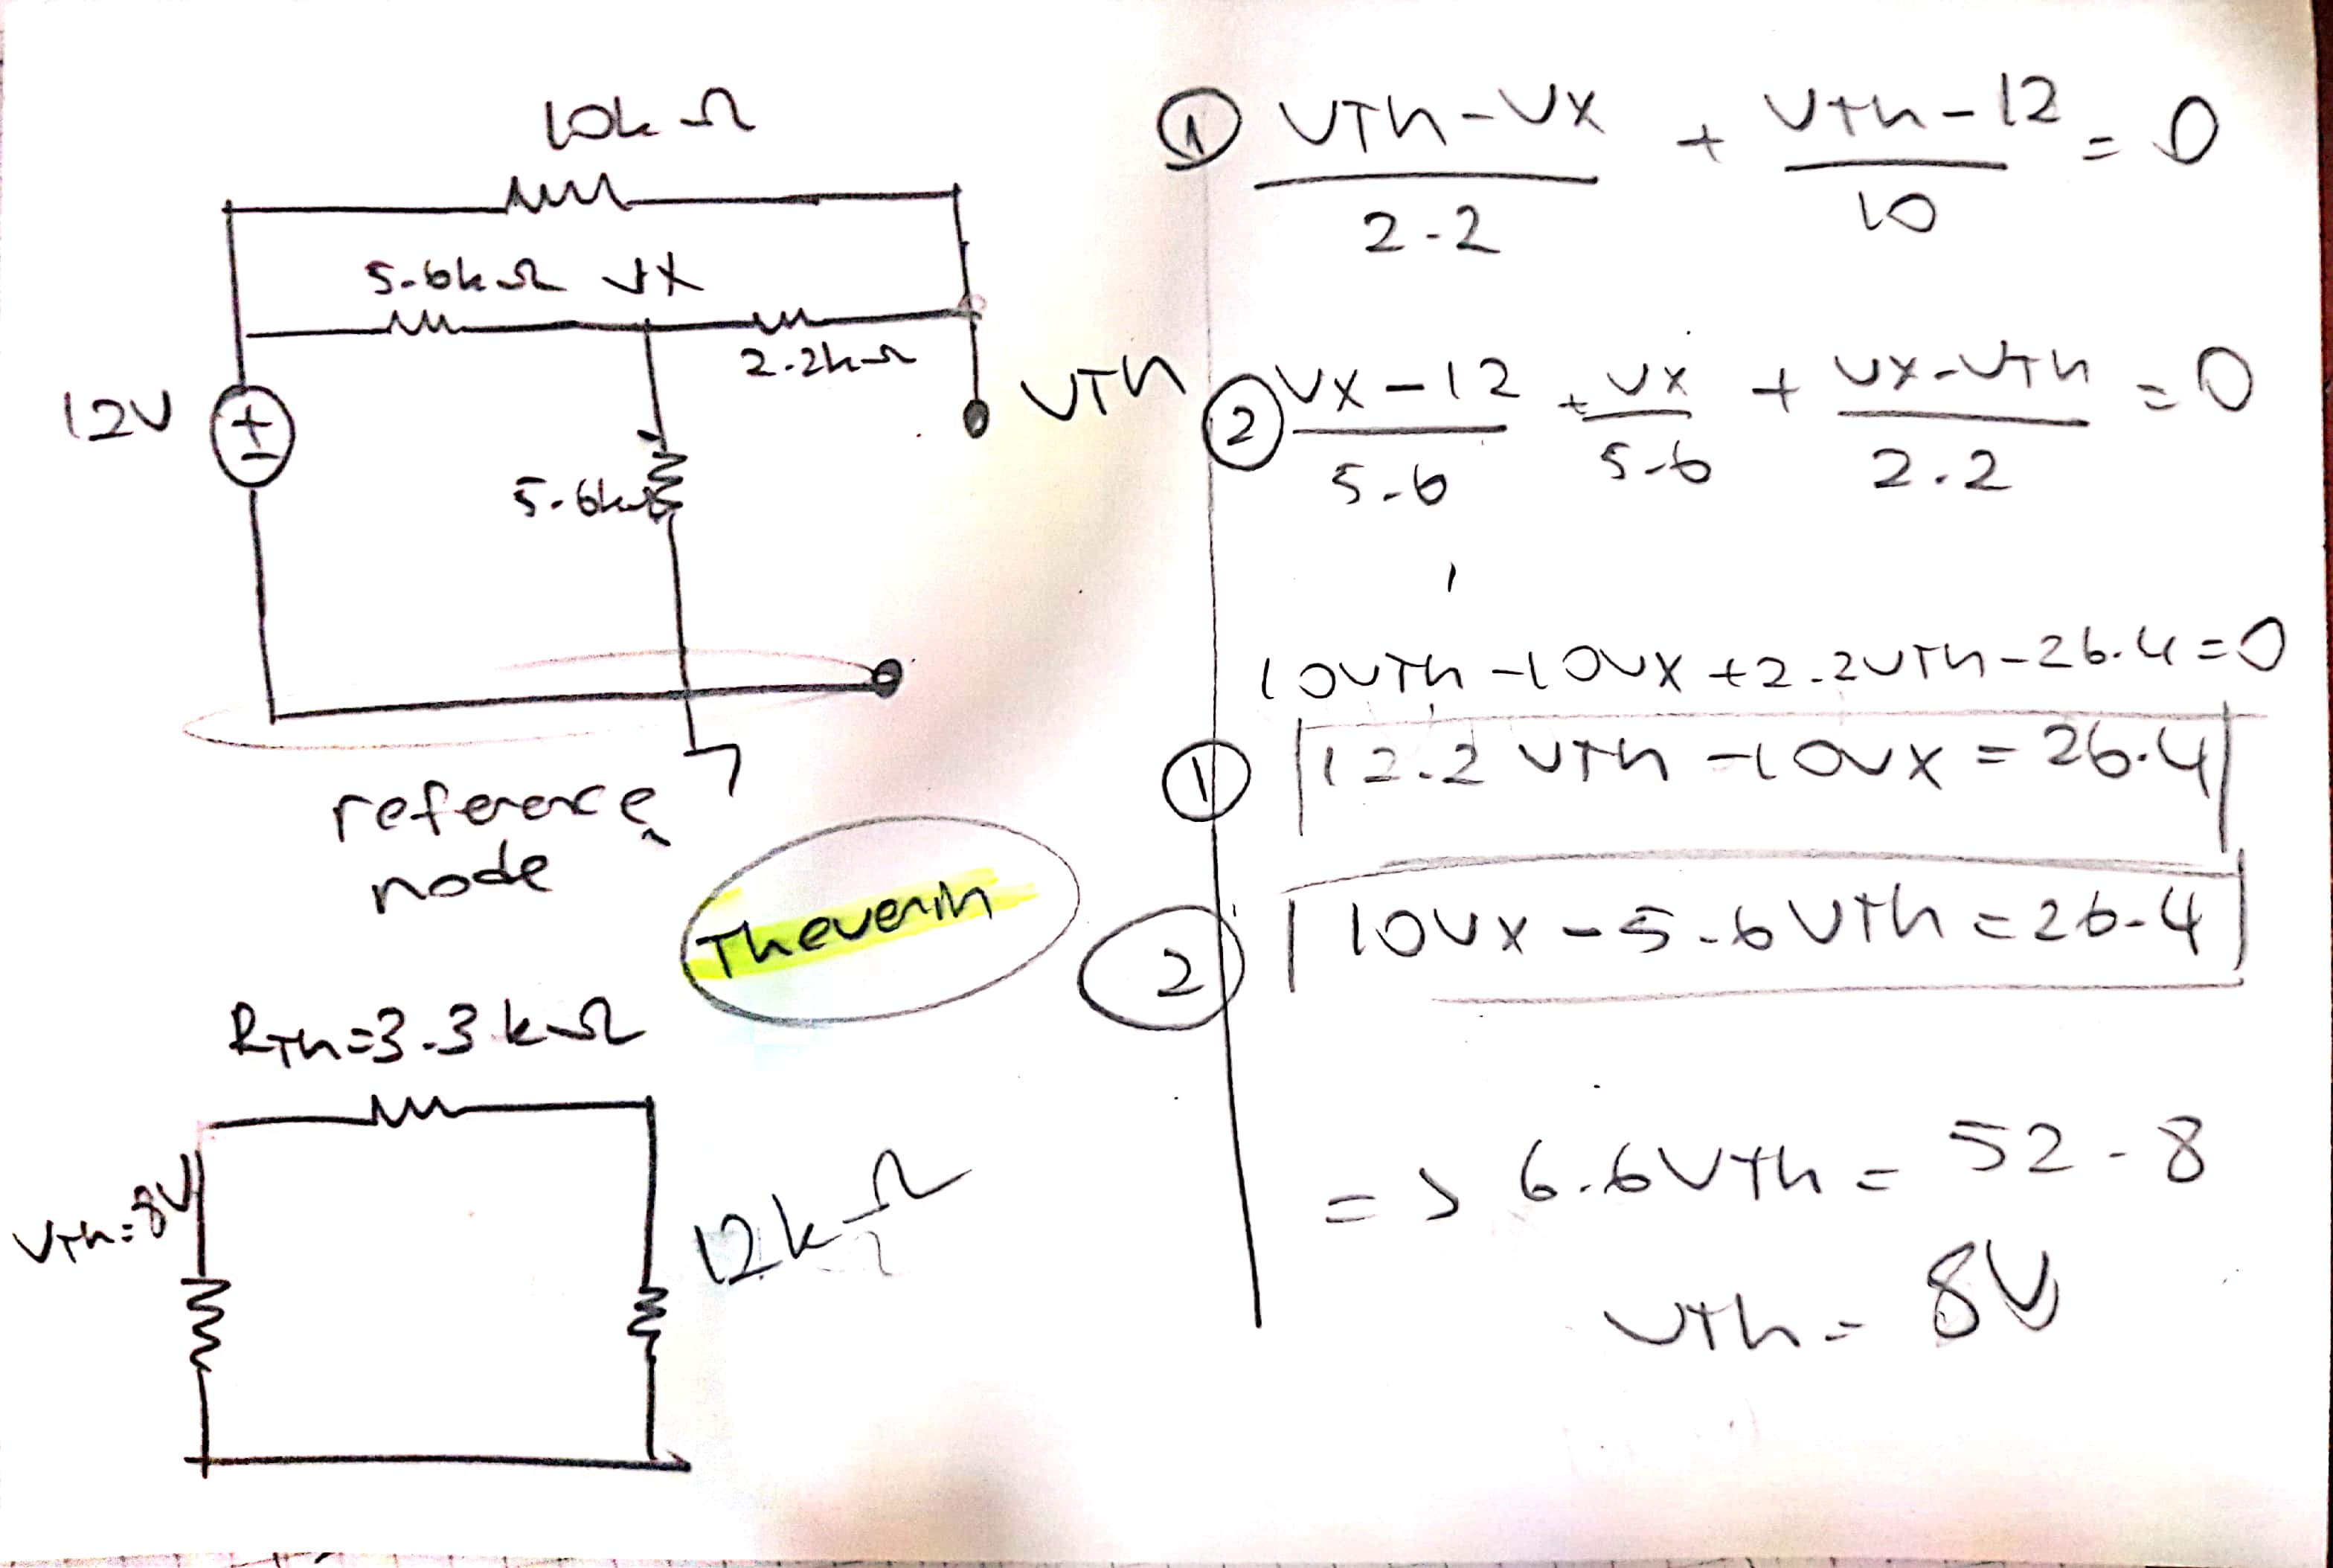 10k Ω
5.6k Ω Vx
2.2k Ω
12V
+
-
VTh
5.6k Ω
reference
node
Thevenin
RTh=3.3 k Ω
VTh=8V
12k Ω
① VTh-Vx/2.2 + VTh-12/10 = 0
② Vx-12/5.6 + Vx/5.6 + Vx-VTh/2.2 = 0
10VTh-10Vx+2.2VTh-26.4=0
① 12.2 VTh -10Vx = 26.4
② 10Vx - 5.6VTh = 26.4
=> 6.6VTh = 52.8
VTh = 8V